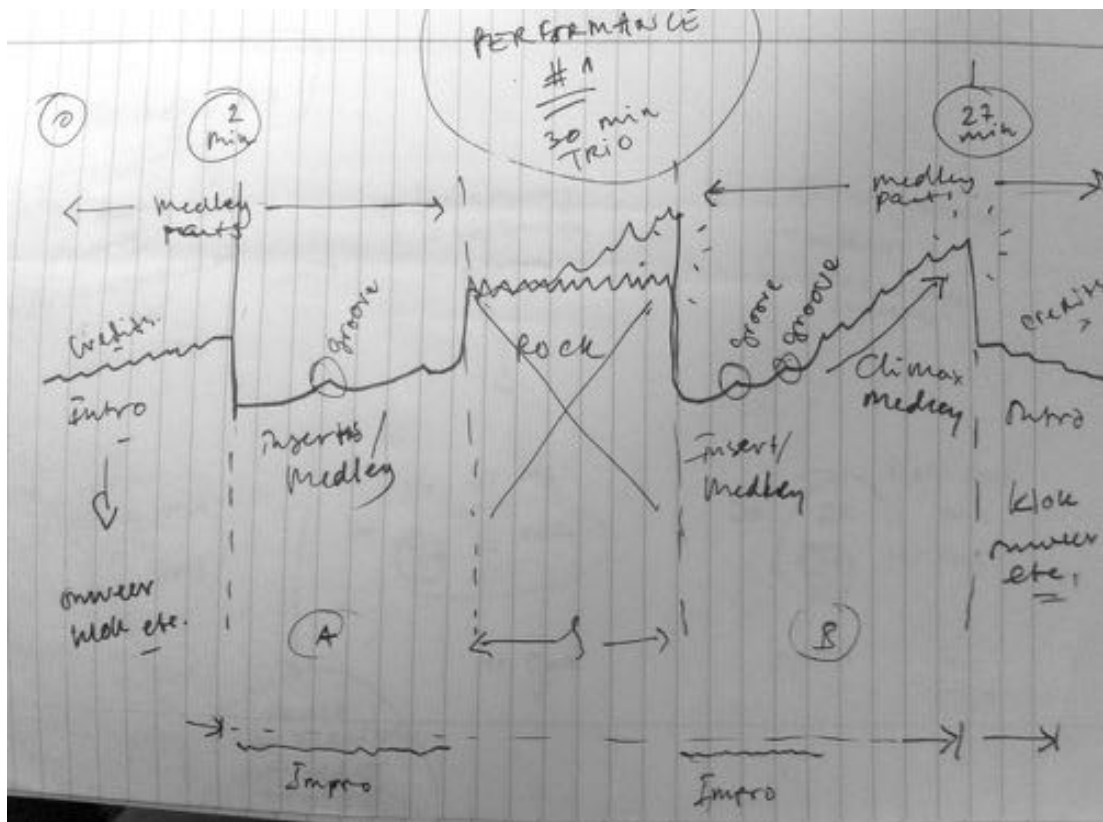 PERFORMANCE
# 1
30 min
TRIO
0
2
min
27
min
medley
part
medley
part
Credits
groove
ROCK
groove
groove
credits
Intro
inserts/
medley
Insert/
medley
Climax
medley
klok
onweer
etc.
onweer
klok etc.
A
B
Impro
Impro